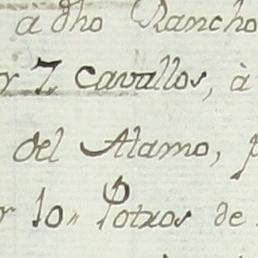 à dho Rancho
r 7 cavallos, à
del Alamo, p
r 10,, Potros de